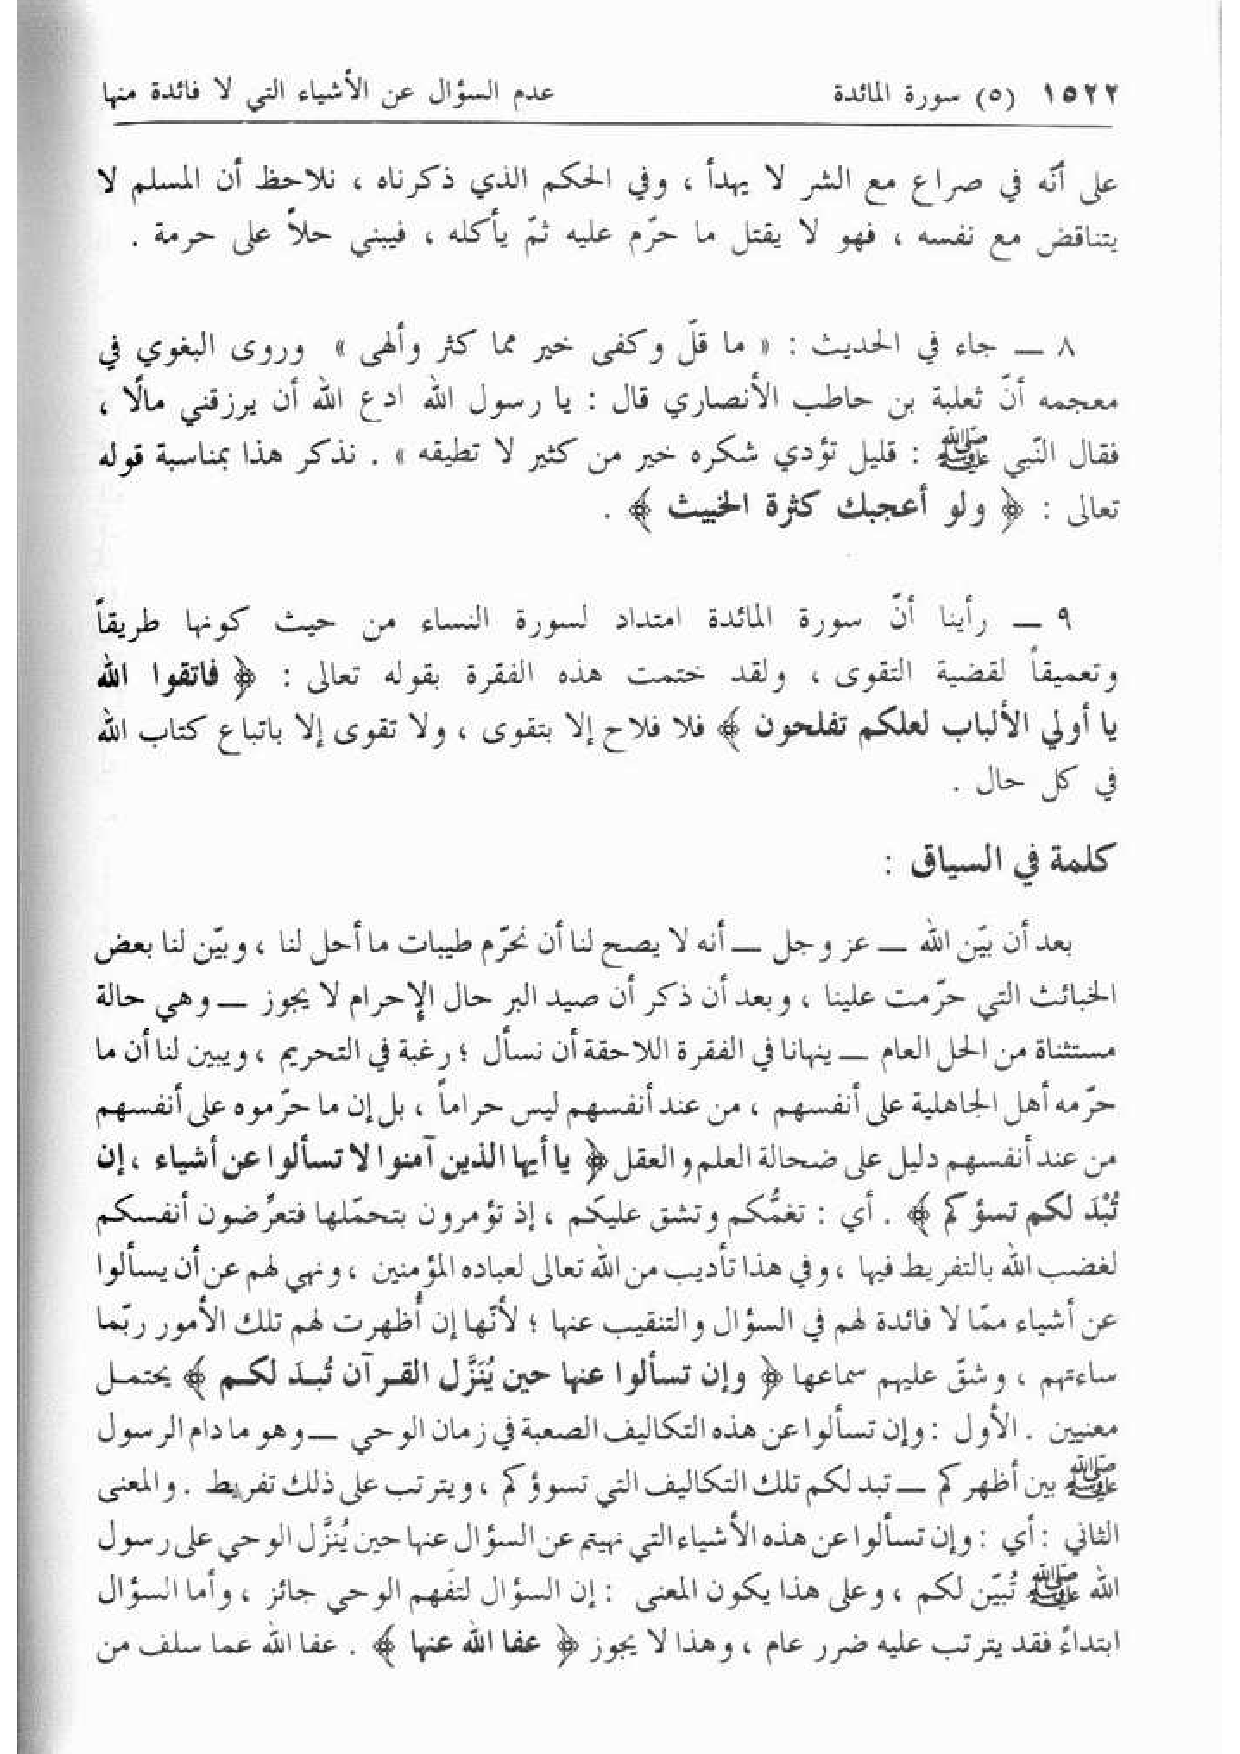 ١٥٢٢ (٥) سورة المائدة عدم السؤال عن الأشياء التي لا فائدة منها
على أنّه في صراع مع الشر لا يهدأ ، وفي الحكم الذي ذكرناه ، نلاحظ أن المسلم لا
يتناقض مع نفسه ، فهو لا يقتل ما حرّم عليه ثمّ يأكله ، فيبني حلاً على حرمة .
٨ ــ جاء في الحديث : « ما قلّ وكفى خير مما كثر وألهى » وروى البغوي في
معجمه أنّ ثعلبة بن حاطب الأنصاري قال : يا رسول الله ادع الله أن يرزقني مالًا ،
فقال النّبي ﷺ : قليل تؤدي شكره خير من كثير لا تطيقه » . نذكر هذا بمناسبة قوله
تعالى : ﴿ ولو أعجبك كثرة الخبيث ﴾ .
٩ ــ رأينا أنّ سورة المائدة امتداد لسورة النساء من حيث كونها طريقاً
وتعميقاً لقضية التقوى ، ولقد ختمت هذه الفقرة بقوله تعالى : ﴿ فاتقوا الله
يا أولي الألباب لعلكم تفلحون ﴾ فلا فلاح إلا بتقوى ، ولا تقوى إلا باتباع كتاب الله
في كل حال .
كلمة في السياق :
بعد أن بيّن الله ــ عز وجل ــ أنه لا يصح لنا أن نحرّم طيبات ما أحل لنا ، وبيّن لنا بعض
الخبائث التي حرّمت علينا ، وبعد أن ذكر أن صيد البر حال الإحرام لا يجوز ــ وهي حالة
مستثناة من الحل العام ــ ينهانا في الفقرة اللاحقة أن نسأل ؛ رغبة في التحريم ، ويبين لنا أن ما
حرّمه أهل الجاهلية على أنفسهم ، من عند أنفسهم ليس حراماً ، بل إن ما حرّموه على أنفسهم
من عند أنفسهم دليل على ضحالة العلم والعقل ﴿ يا أيها الذين آمنوا لا تسألوا عن أشياء ، إن
تُبْدَ لكم تسؤكم ﴾ . أي : تغمُّكم وتشق عليكم ، إذ تؤمرون بتحمّلها فتعرِّضون أنفسكم
لغضب الله بالتفريط فيها ، وفي هذا تأديب من الله تعالى لعباده المؤمنين ، ونهي لهم عن أن يسألوا
عن أشياء ممّا لا فائدة لهم في السؤال والتنقيب عنها ؛ لأنّها إن أُظهرت لهم تلك الأمور ربّما
ساءتهم ، وشقّ عليهم سماعها ﴿ وإن تسألوا عنها حين يُنَزَّل القرآن تُبدَ لكم ﴾ يحتمل
معنيين . الأول : وإن تسألوا عن هذه التكاليف الصعبة في زمان الوحي ــ وهو ما دام الرسول
ﷺ بين أظهركم ــ تبد لكم تلك التكاليف التي تسوؤكم ، ويترتب على ذلك تفريط . والمعنى
الثاني : أي : وإن تسألوا عن هذه الأشياء التي نهيتم عن السؤال عنها حين يُنزَّل الوحي على رسول
الله ﷺ تُبيّن لكم ، وعلى هذا يكون المعنى : إن السؤال لتفهم الوحي جائز ، وأما السؤال
ابتداءً فقد يترتب عليه ضرر عام ، وهذا لا يجوز ﴿ عفا الله عنها ﴾ . عفا الله عما سلف من